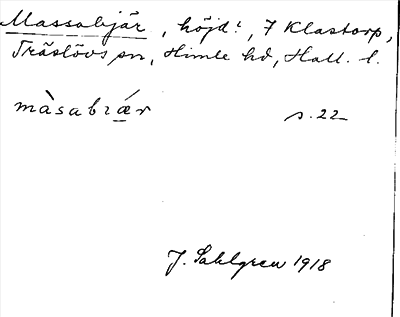 Massabjär, höjd!, 7 Klastorp,
Träslövs sn, Himle hd, Hall. l.
màsabɿǽr s. 22
J. Sahlgren 1918